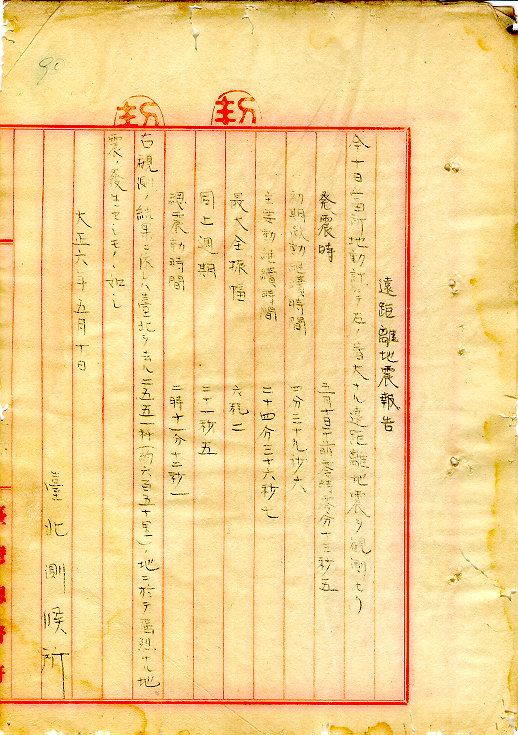 遠距離地震報告
今十日當所地動計ハ左ノ音大ナル遠距離地震ヲ觀測セリ
発震時 五月十日午前零時零分十三秒五
初期微動繼續時間 六分三十九秒六
主要動繼續時間 二十四分三十六秒七
最大全振幅 六粍二
同上週期 二十一秒五
總震動時間 二時十一分十二秒一
右觀測ノ結果ニ依レハ臺北ヲ去ル二五五一粁(約六百五十里)ノ地ニ於テ强烈ナル地
震ノ發生セシモノヽ如シ
大正六年五月十日
臺北測候所
90